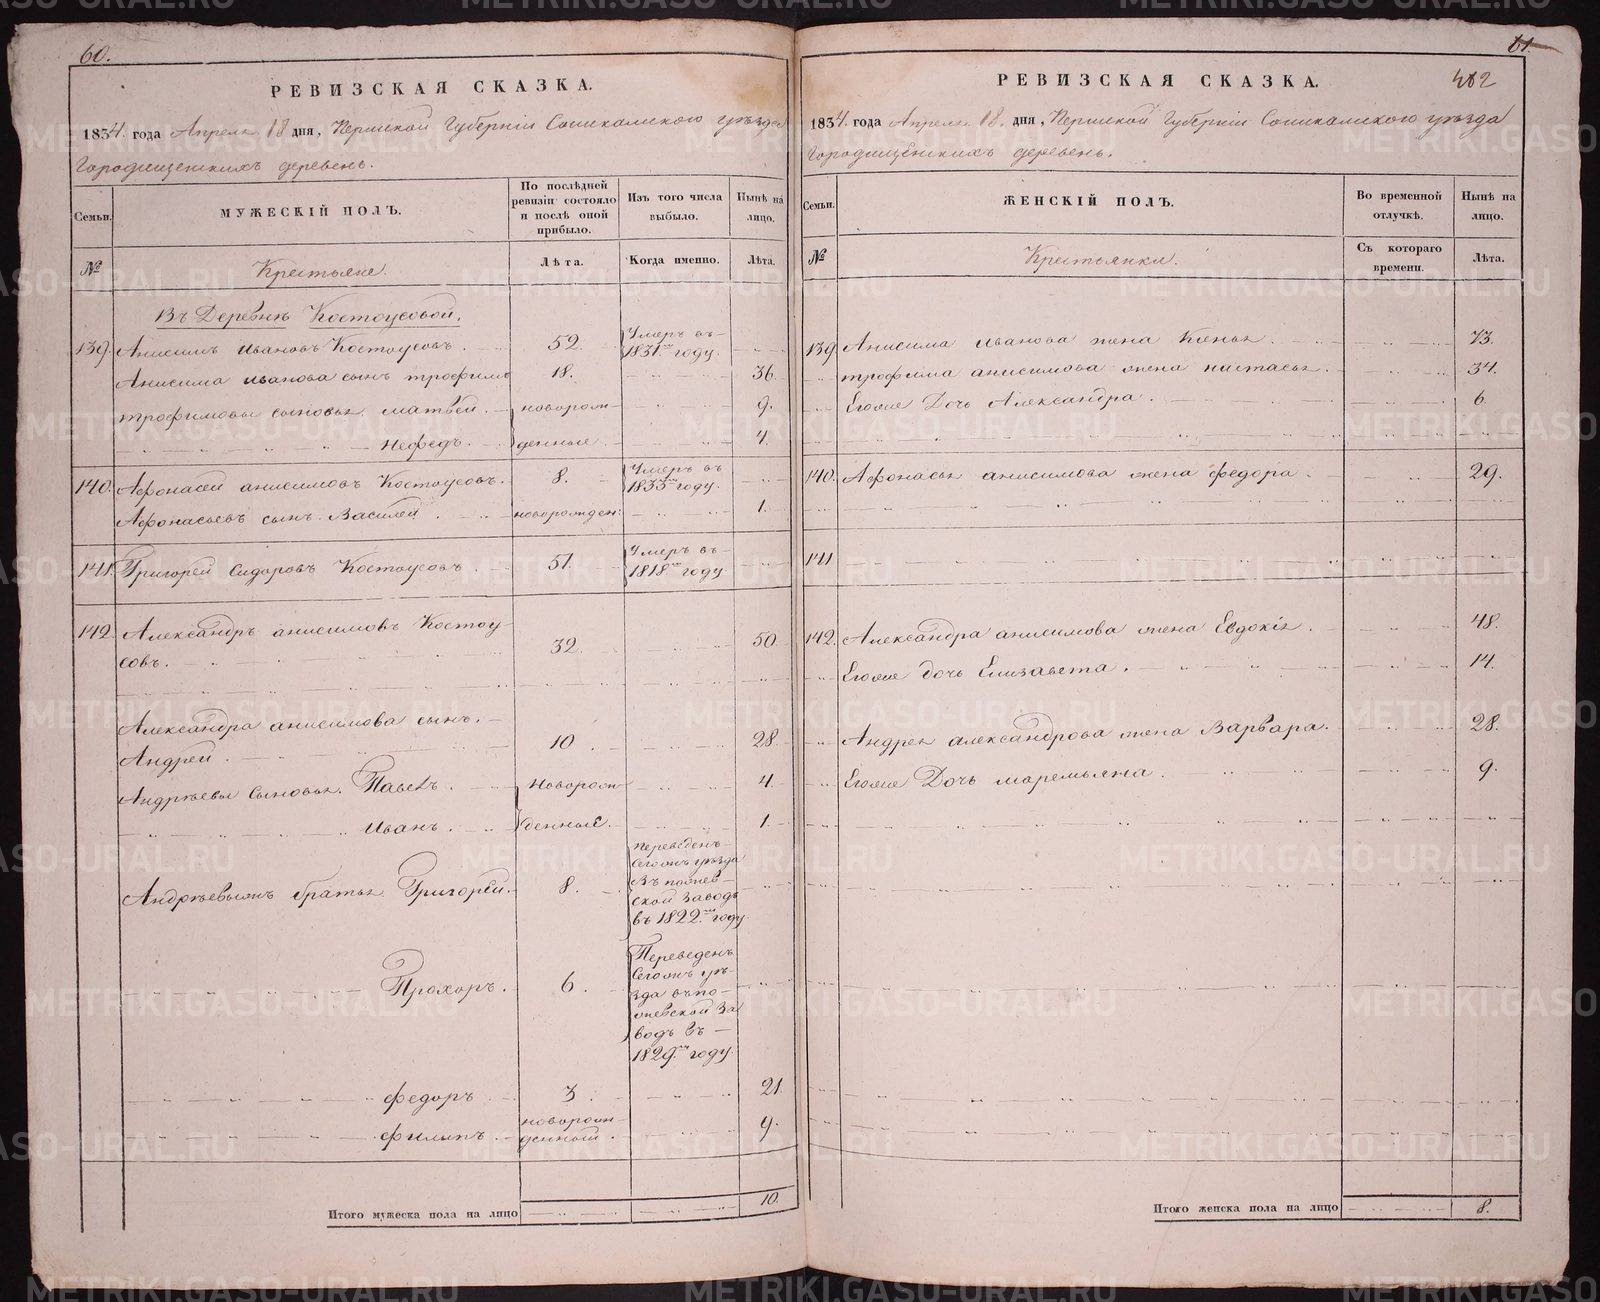 60.
РЕВИЗСКАЯ СКАЗКА.
1834. года Апреля 18 дня, Пермской Губернiи Соликамскаго уѣзда
Городищенскихъ деревень.
Семьи.
МУЖЕСКIЙ ПОЛЪ.
По послѣдней ревизiи состояло и послѣ оной прибыло.
Изъ того числа выбыло.
Нынѣ на лицо.
№
Крестьяне.
Лѣта.
Когда именно.
Лѣта.
Въ Деревнѣ Костоусовой.
139. Анисимъ Ивановъ Костоусовъ. 52. Умеръ въ 1831.мъ году.
Анисима Иванова сынъ трофимъ 18. 36.
трофимовы сыновья матвей. новорож- 9.
Нефедъ. денные. 4.
140. Афонасей анисимовъ Костоусовъ. 8. Умеръ въ 1833мъ году.
Афонасьевъ сынъ Василей. новорожден: 1.
141. Григорей Сидоровъ Костоусовъ. 51. Умеръ въ 1818.мъ году
142. Александръ анисимовъ Костоу-
совъ. 32. 50.
Александра анисимова сынъ.
Андрей. 10. 28.
Андрѣевы Сыновья. Павелъ. Новорож- 4.
Иванъ. денные. 1.
Андрѣевымъ братья Григорей. 8. Переведенъ
Сегожъ уѣзда
въ пожев-
ской заводъ
въ 1822.мъ году.
Прохоръ. 6. Переведенъ
Сегожъ уѣ-
зда въ по-
жевской За
водъ въ
1829.мъ году.
федоръ 3. 21.
филипъ. новорож- денный. 9.
Итого мужеска пола на лицо 10.
61.
462
РЕВИЗСКАЯ СКАЗКА.
1834. года Апреля 18. дня, Пермской Губернiи Соликамскаго уѣзда
Городищенскихъ деревень.
Семьи.
ЖЕНСКIЙ ПОЛЪ.
Во временной отлучкѣ.
Нынѣ на лицо.
№
Крестьянки.
Съ котораго времени.
Лѣта.
139. Анисима Иванова жена 73.
трофима анисимова жена настасья. 34.
Егоже Дочь Александра. 6.
140. Афонасья анисимова жена федора. 29.
141
142. Александра анисимова жена Евдокiя. 48.
Егоже дочь Елизавета. 14.
Андрея александрова жена Варвара. 28.
Егоже Дочь маремьяна. 9.
Итого женска пола на лицо 8.
METRIKI.GASO-URAL.RU